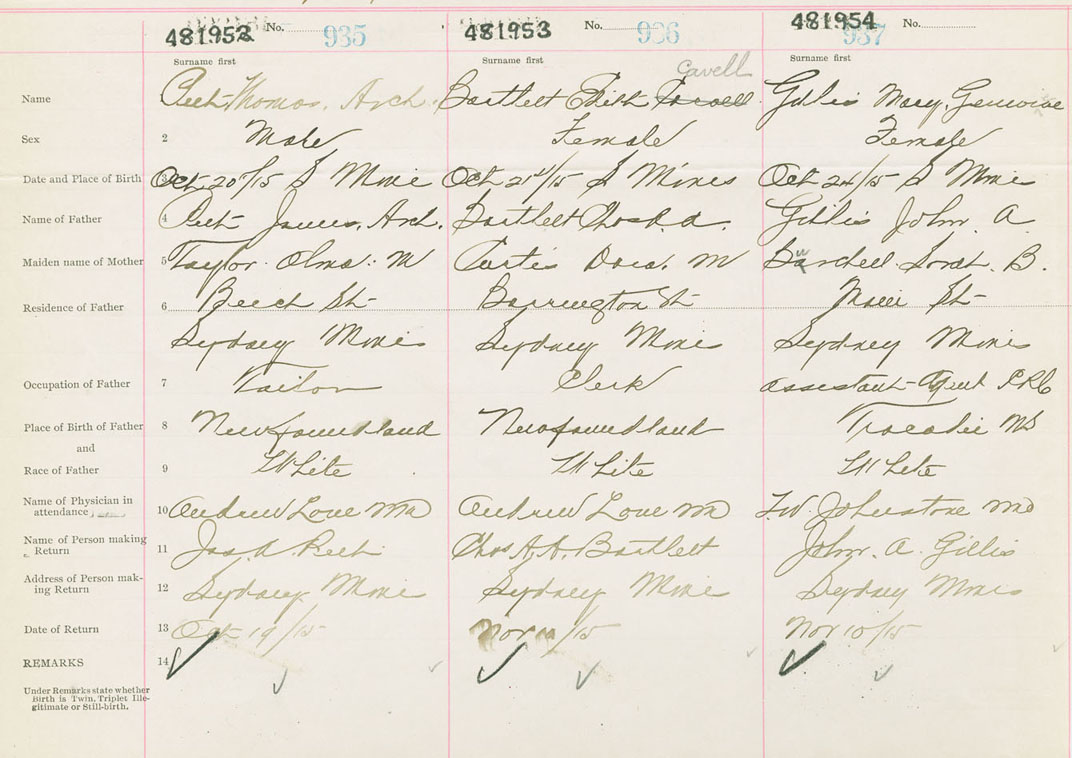 481952 No. 935 481953 No. 936 481954 No. 937
Surname first Surname first Surname first
Cavell
Name Thomas, Arch. Bartlett Edith Gillis Mary, Genevieve
Sex 2 Male Female Female
Date and Place of Birth 3 Oct 20/15 S Mines Oct 21/15 S Mines Oct 24/15 S Mines
Name of Father 4 James, Arch. Bartlett Chas A.A. Gillis John A
Maiden name of Mother 5 Taylor Olma. M Curtis Dora. M B.
Residence of Father 6 Beech St Barrington St Main St
Sydney Mines Sydney Mines Sydney Mines
Occupation of Father 7 Tailor Clerk Assistant Agent
Place of Birth of Father 8 Newfoundland Newfoundland Tracadie NS
and
Race of Father 9 White White White
Name of Physician in
attendance 10 Andrew Love MD Andrew Love MD F.W. Johnstone MD
Name of Person making
Return 11 Jas A Chas A.A. Bartlett John. A. Gillis
Address of Person mak-
ing Return 12 Sydney Mines Sydney Mines Sydney Mines
Date of Return 13 Oct 19/15 Nov 10/15 Nov 10/15
REMARKS 14
Under Remarks state whether
Birth is Twin, Triplet Ille-
gitimate or Still-birth.